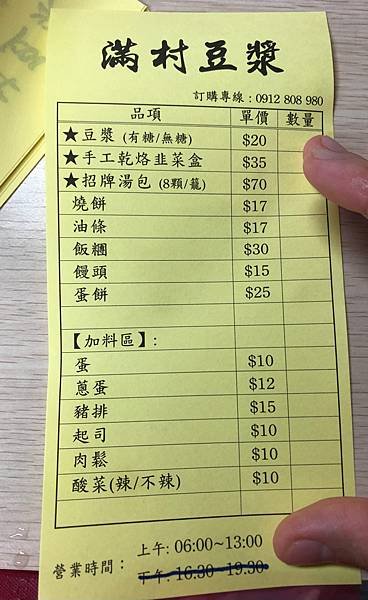 滿村豆漿
訂購專線：0912 808 980
品項 單價 數量
★豆漿 (有糖/無糖) $20
★手工乾烙韭菜盒 $35
★招牌湯包 (8顆/籠) $70
燒餅 $17
油條 $17
飯糰 $30
饅頭 $15
蛋餅 $25
【加料區】:
蛋 $10
蔥蛋 $12
豬排 $15
起司 $10
肉鬆 $10
酸菜(辣/不辣) $10
營業時間：
上午: 06:00~13:00
下午: 16:30~19:30